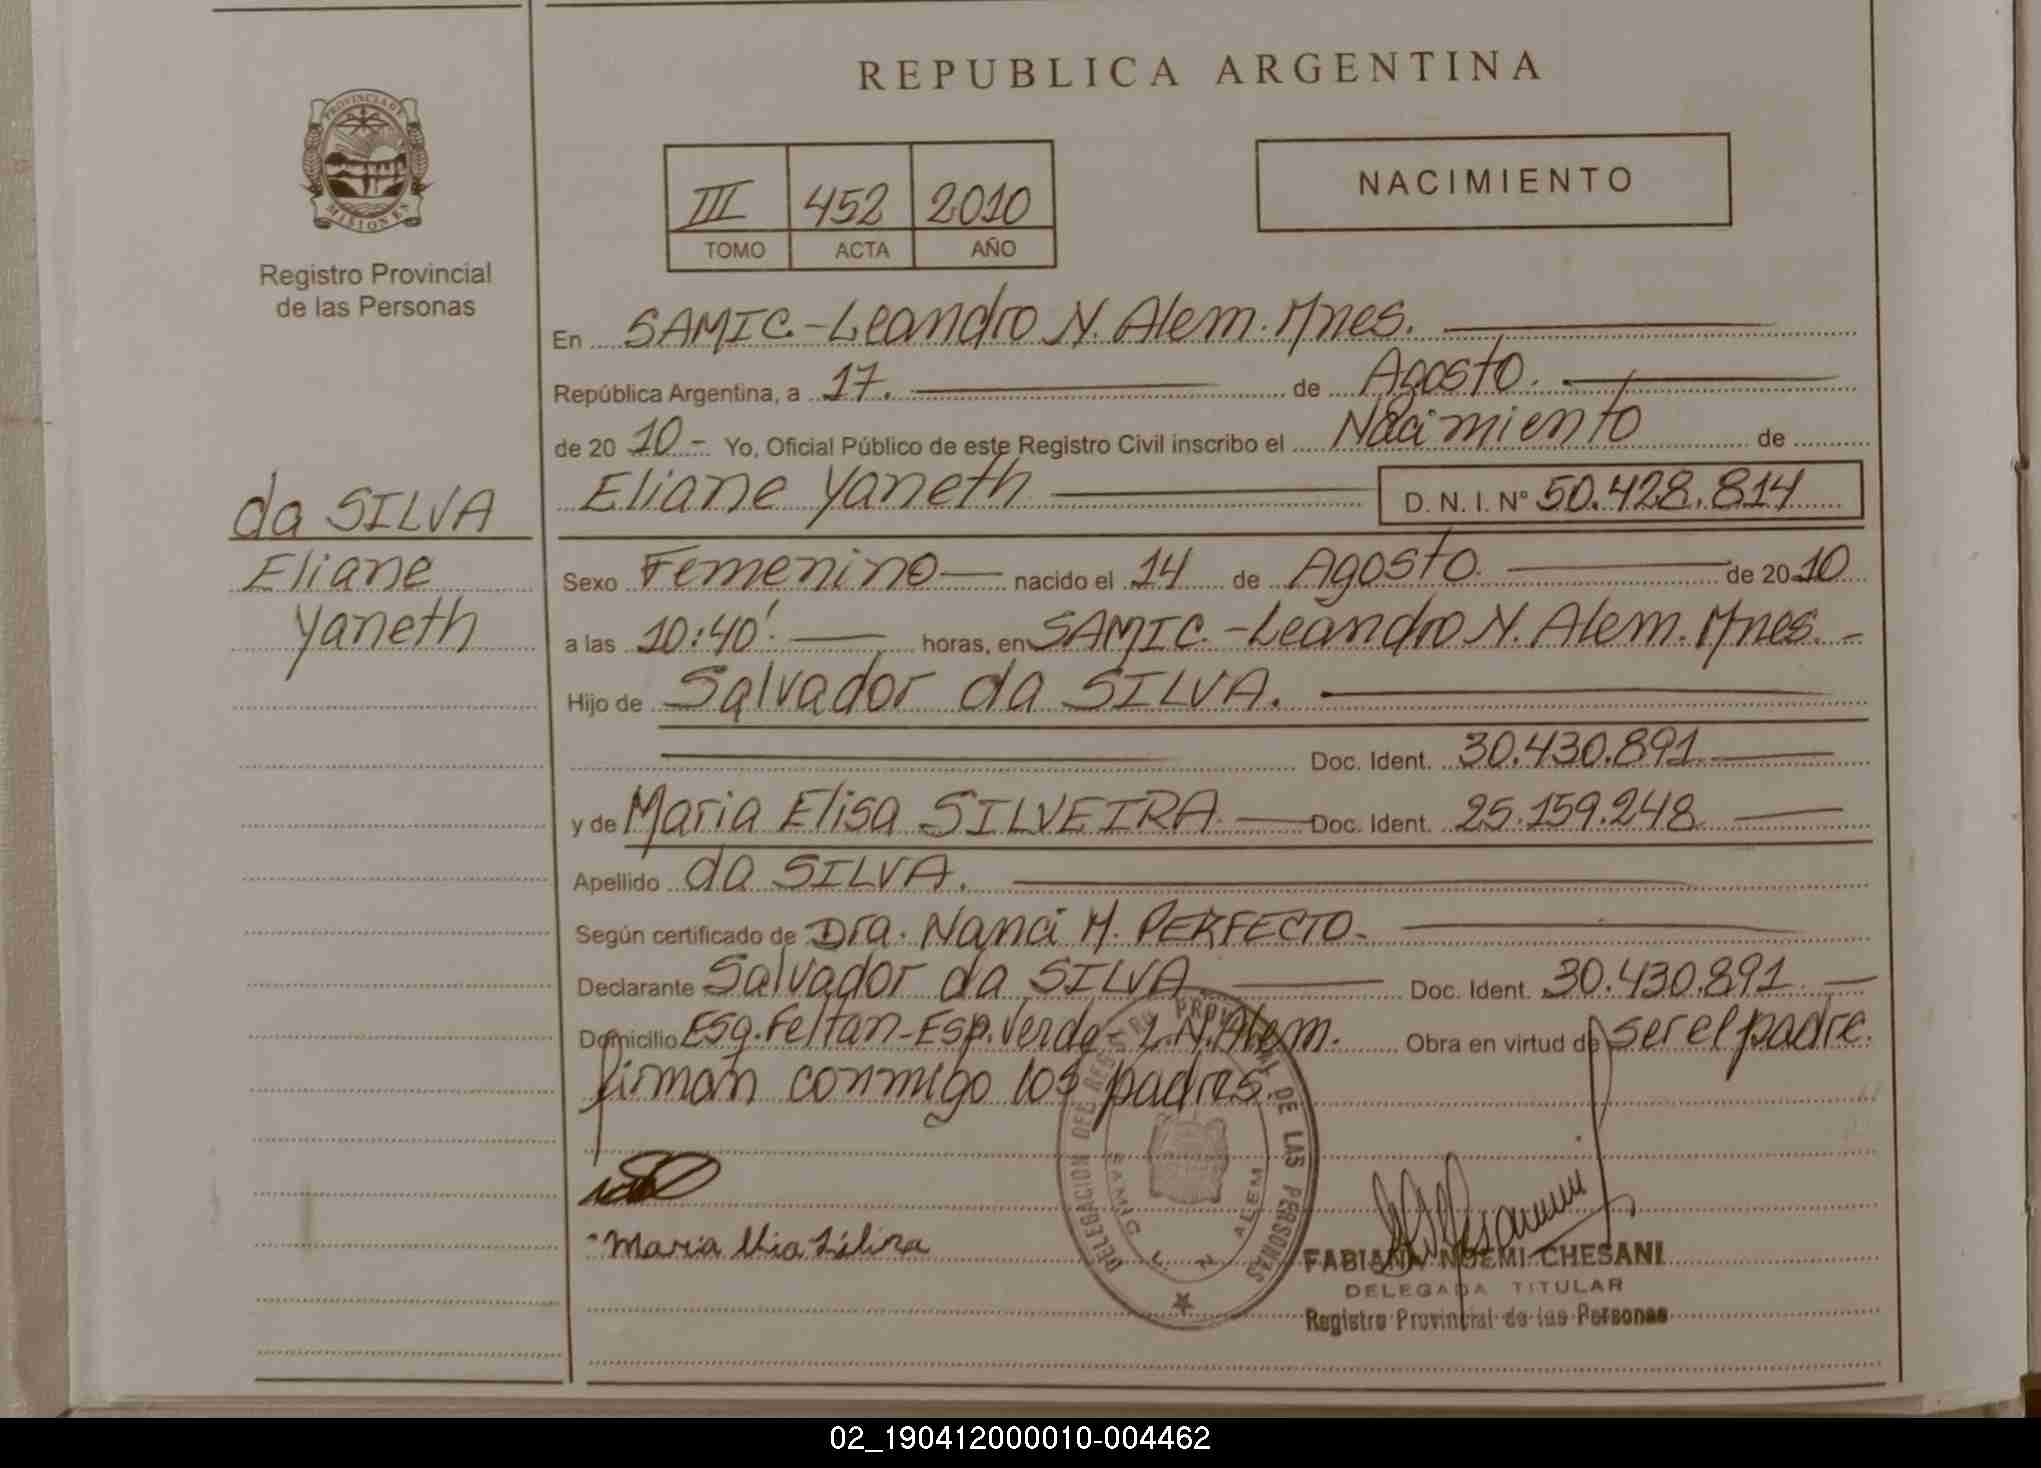 REPUBLICA ARGENTINA
PROVINCIA DE MISIONES
Registro Provincial
de las Personas
III 452 2010
TOMO ACTA AÑO
NACIMIENTO
En SAMIC-Leandro N. Alem. Mnes.
República Argentina, a 17. de Agosto.
de 20 10- Yo, Oficial Público de este Registro Civil inscribo el Nacimiento de
Eliane Yaneth D. N. I. Nº 50.428.814
da SILVA
Eliane
Yaneth
Sexo Femenino nacido el 14 de Agosto. de 20 10
a las 10:40'. horas, en SAMIC.-Leandro N. Alem. Mnes. -
Hijo de Salvador da SILVA.
Doc. Ident. 30.430.891
y de Maria Elisa SILVEIRA Doc. Ident. 25.159.248
Apellido da SILVA.
Según certificado de Dra. Nanci M. PERFECTO-
Declarante Salvador da SILVA Doc. Ident. 30.430.891
Domicilio Esq. Feltan-Esp. Verde L.N. Alem. Obra en virtud de ser el padre.
firman conmigo los padres.
DELEGACION DEL REGISTRO PROVINCIAL DE LAS PERSONAS
SAMIC L. N. ALEM
Maria
FABIANA NOEMI CHESANI
DELEGADA TITULAR
Registro Provincial de las Personas
02_190412000010-004462